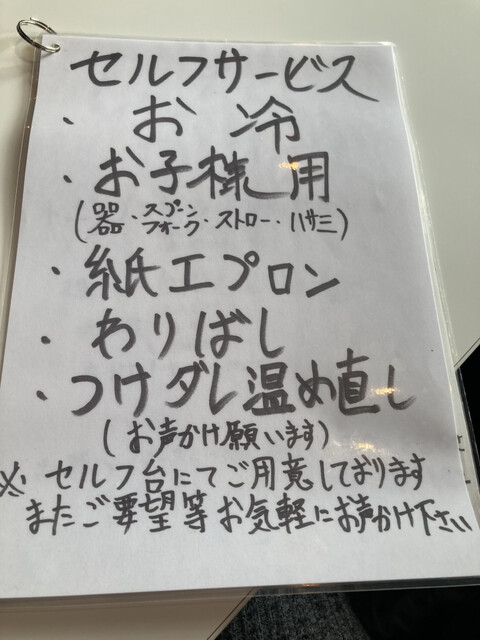 セルフサービス
・お冷
・お子様用
(器・スプーン フォーク・ストロー・ハサミ)
・紙エプロン
・わりばし
・つけダレ温め直し
(お声かけ願います)
※セルフ台にてご用意しております
またご要望等お気軽にお声かけ下さい